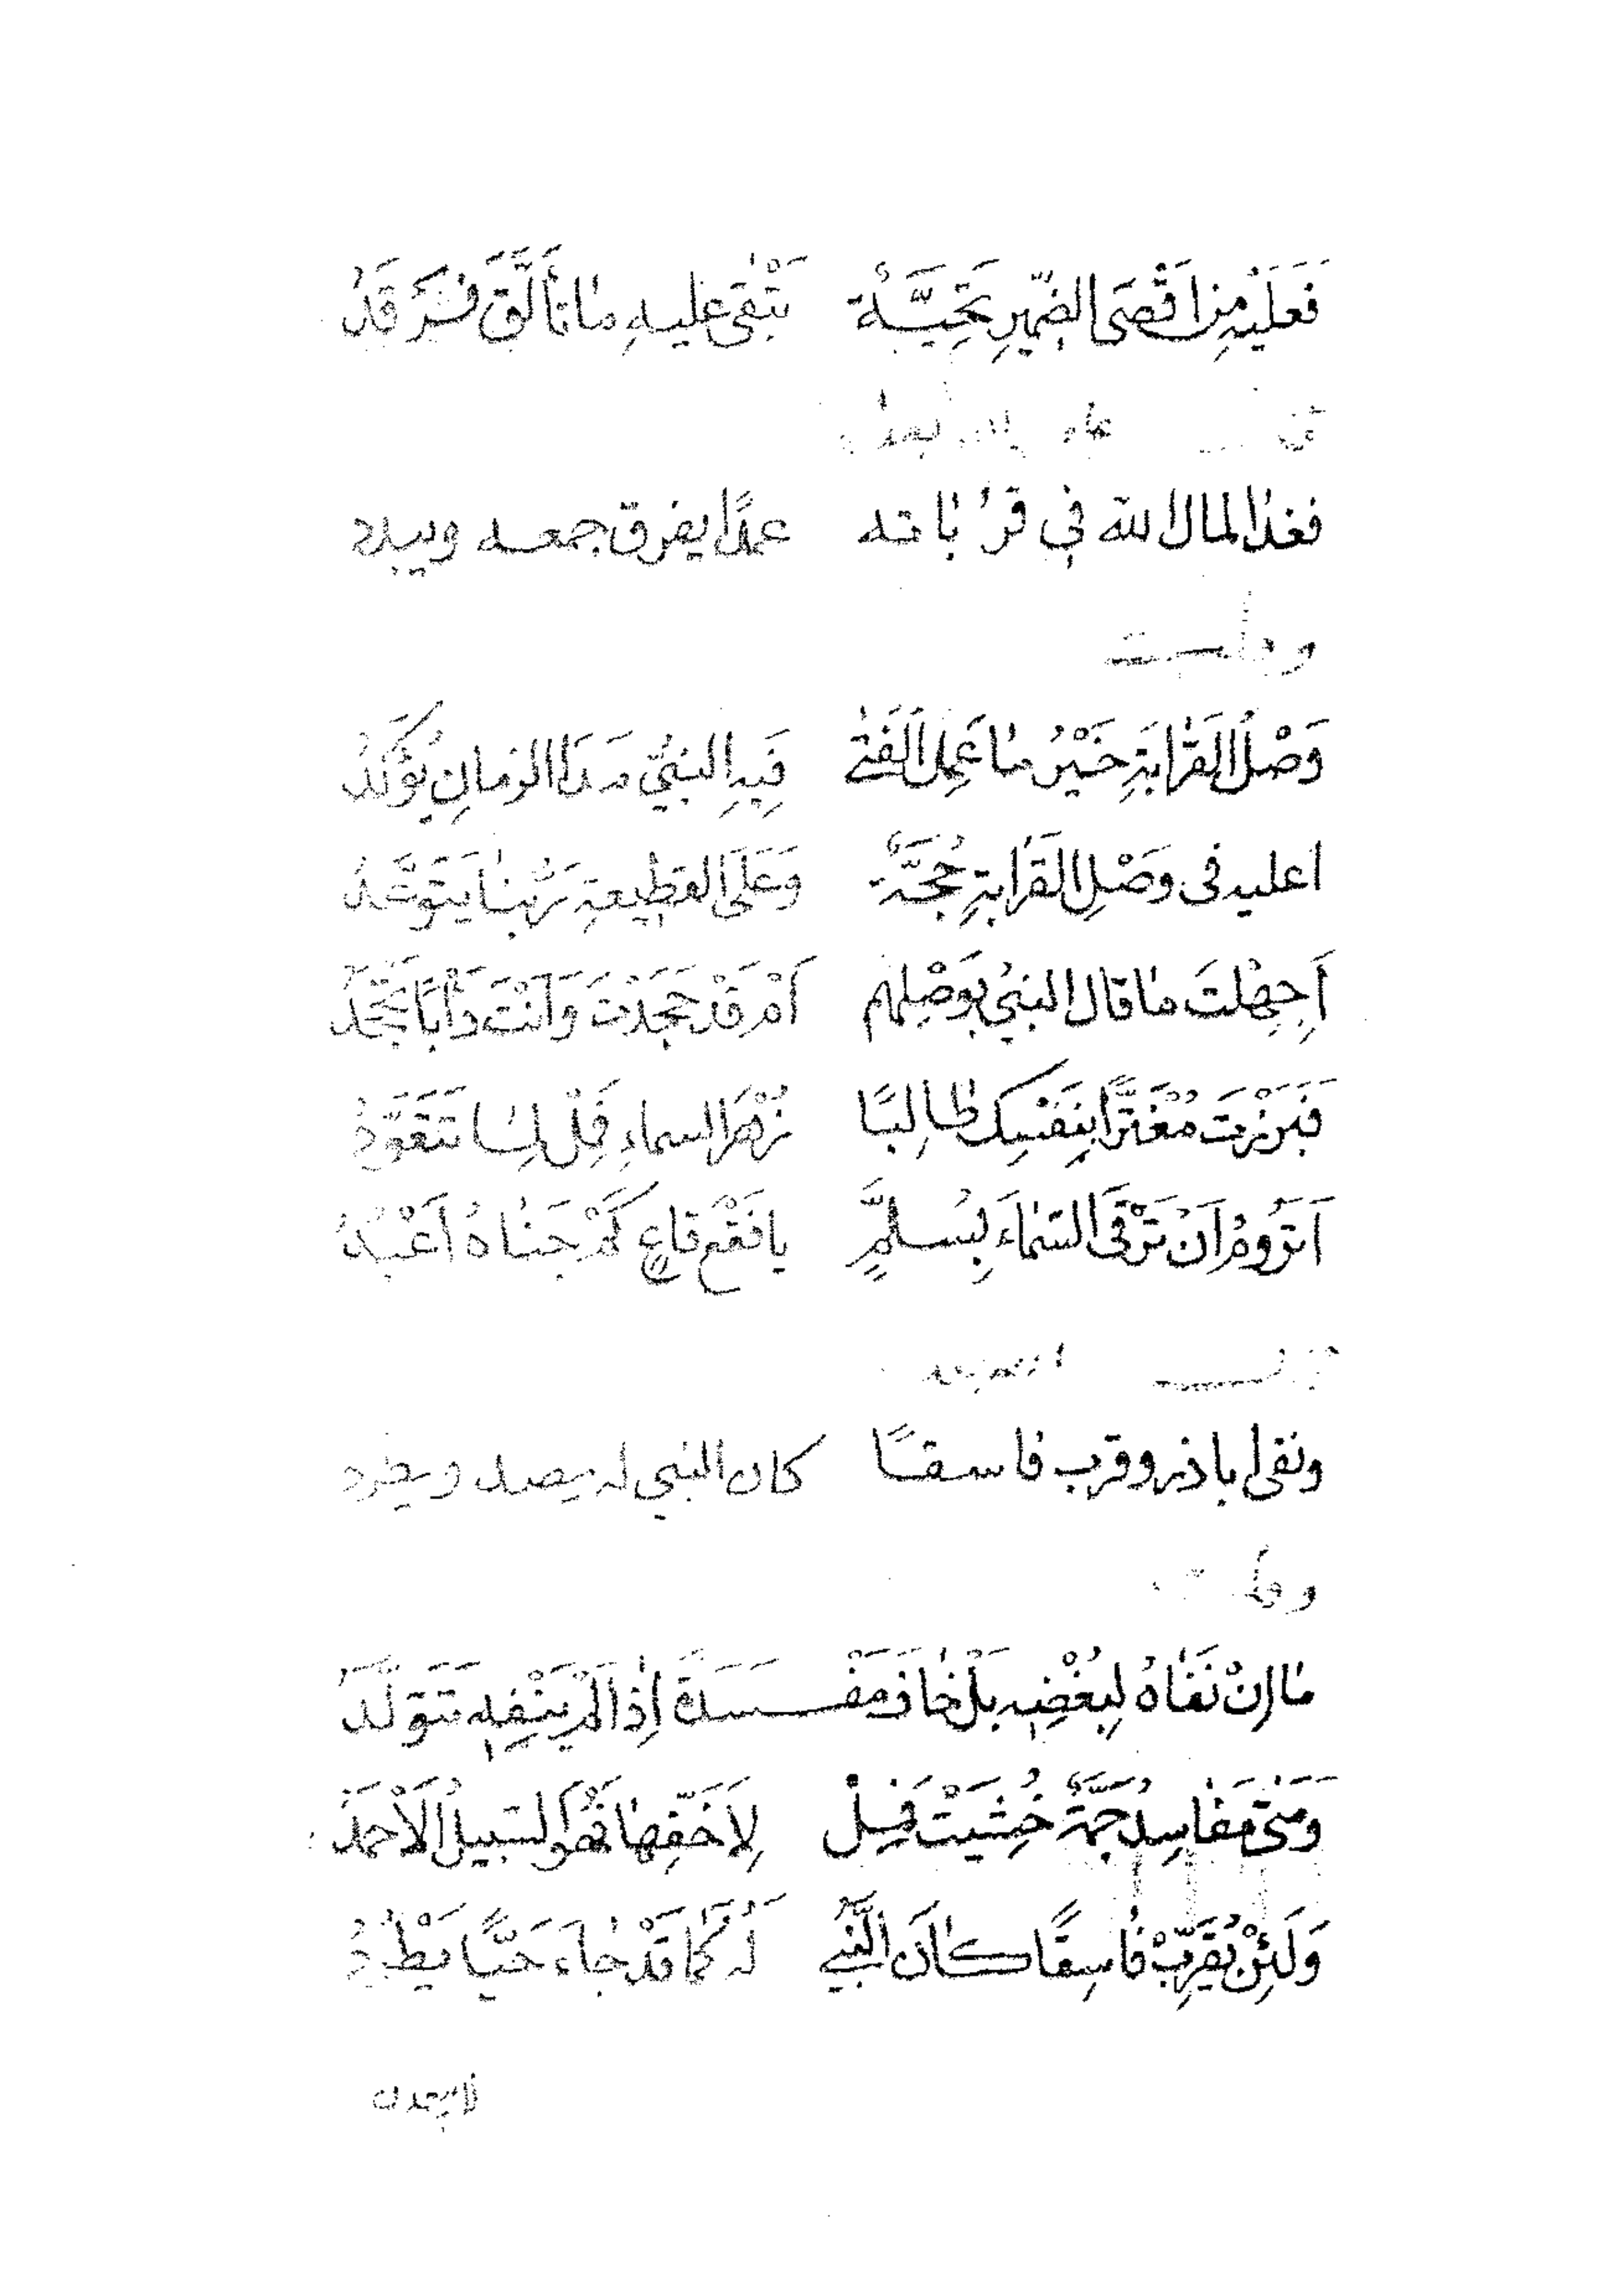 فَعَلَيْهِ مِن اَقْصَى الضَّمِيرِ تَحِيَّةٌ تَبْقٰى عليهِ مَا تَأَلَّقَ فَرْقَدُ
فغدا لمال الله في قرباته عمدًا يفرق جمعه ويبدد
وَصْلُ القَرَابَةِ خَيْرُ مَا عَمِلَ الْفَتٰى فِيهِ النبيُّ مَدَا الزمانِ يُؤَكِّدُ
اعليه في وَصْلِ القَرَابَةِ حُجَّةٌ وَعَلَى القطيعةِ رَبُّنَا يَتَوَعَّدُ
اَجَهِلْتَ مَا قال النبيُ بِوَصْلِهِم اَمْ قَدْ جَحَدْتَ وَاَنْتَ دَأْبًا تَجْحَدُ
فَبَرَزْتَ مُغْتَرًّا بِنَفْسِكَ طَالِبًا زُهْرَ السماءِ فَلِلْسَا تَتَقَوَّدُ
اَتَرُومُ اَنْ تَرْقَى السَّمَاءَ بِسُلَّمٍ يا فَقْعَ قاعٍ كَمْ جَنَاهُ اَعْبُدُ
ونفى اباذر وقرب فاسقًا كان النبي له يصد ويطرد
وقلت
مَا اِنْ نَفَاهُ لِبُغْضِهِ بَلْ خَافَ مَفْسَدَةً اِذَا لَمْ يَنْفِهِ تَتَوَلَّدُ
وَمَتٰى مَفَاسِدُ جَمَّةٌ خُشِيَتْ فَمِلْ لِاَخَفِّهَا فَهُوَ السَّبِيلُ الاَحْمَدُ
وَلَئِنْ يُقَرِّبْ فَاسِقًا كَانَ النَّبِيْ لَهُ كَمَا قَدْ جَاءَ حَيًّا يَطْرُدُ